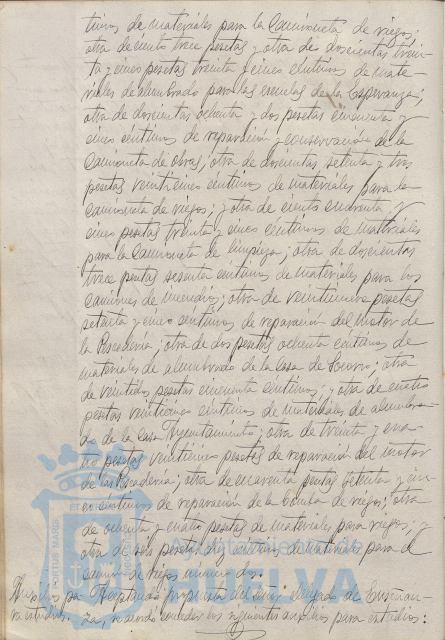 timos de materiales para la Camioneta de riegos;
otra de ciento trece pesetas y otra de doscientas trein-
ta y cinco pesetas treinta y cinco céntimos de mate-
riales de alumbrado para las escuelas de la Esperanza;
otra de doscientas ochenta y dos pesetas cincuenta y
cinco céntimos de reparación y conservación de la
Camioneta de obras; otra de doscientas setenta y tres
pesetas veinticinco céntimos de materiales para la
camioneta de riegos; y otra de ciento cincuenta y
cinco pesetas treinta y cinco céntimos de materiales
para la Camioneta de limpieza; otra de doscientas
trece pesetas sesenta céntimos de materiales para los
camiones de incendios; otra de veintinueve pesetas
setenta y cinco céntimos de reparación del motor de
la Pescadería; otra de dos pesetas ochenta céntimos de
materiales de alumbrado de la Casa de Socorro; otra
de veintidos pesetas cincuenta céntimos; y otra de cuatro
pesetas veinticinco céntimos de materiales de alumbra-
do de la Casa Ayuntamiento; otra de treinta y cua-
tro pesetas veinticinco pesetas de reparación del motor
de la Pescadería; otra de cuarenta pesetas setenta y cin-
co céntimos de reparación de la bomba de riegos; otra
de ochenta y cuatro pesetas de materiales para riegos; y
otra de seis pesetas diez céntimos de materiales para el
camión de riegos número dos.
Auxilios pa- Aceptando propuesta del señor Delegado de Enseñan-
ra estudios. za, se acordó conceder los siguientes auxilios para estudios:
Ayuntamiento de
HUELVA